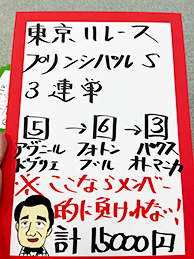 東京11レース
プリンシパルS
3連単
5→6→3
アヴニール フォトン パウス
ドゥヴェ ブル オトマニカ
※ここならメンバー
的に負けれない!
計15000円